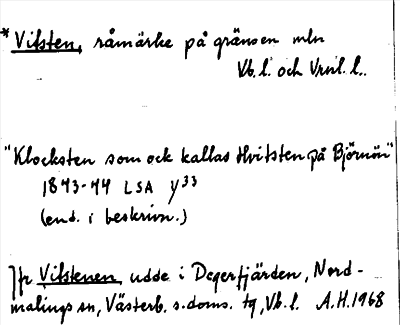 * Vitsten, råmärke på gränsen mln
Vb.l. och Vrml.l..
"Klocksten som ock kallas Hvitsten på Björnön"
1843-44 LSA Y33
(end. i beskrivn.)
Jfr Vitstenen, udde i Degerfjärden, Nord-
malings sn, Västerb. s. doms. tg, Vb.l. A.H. 1968